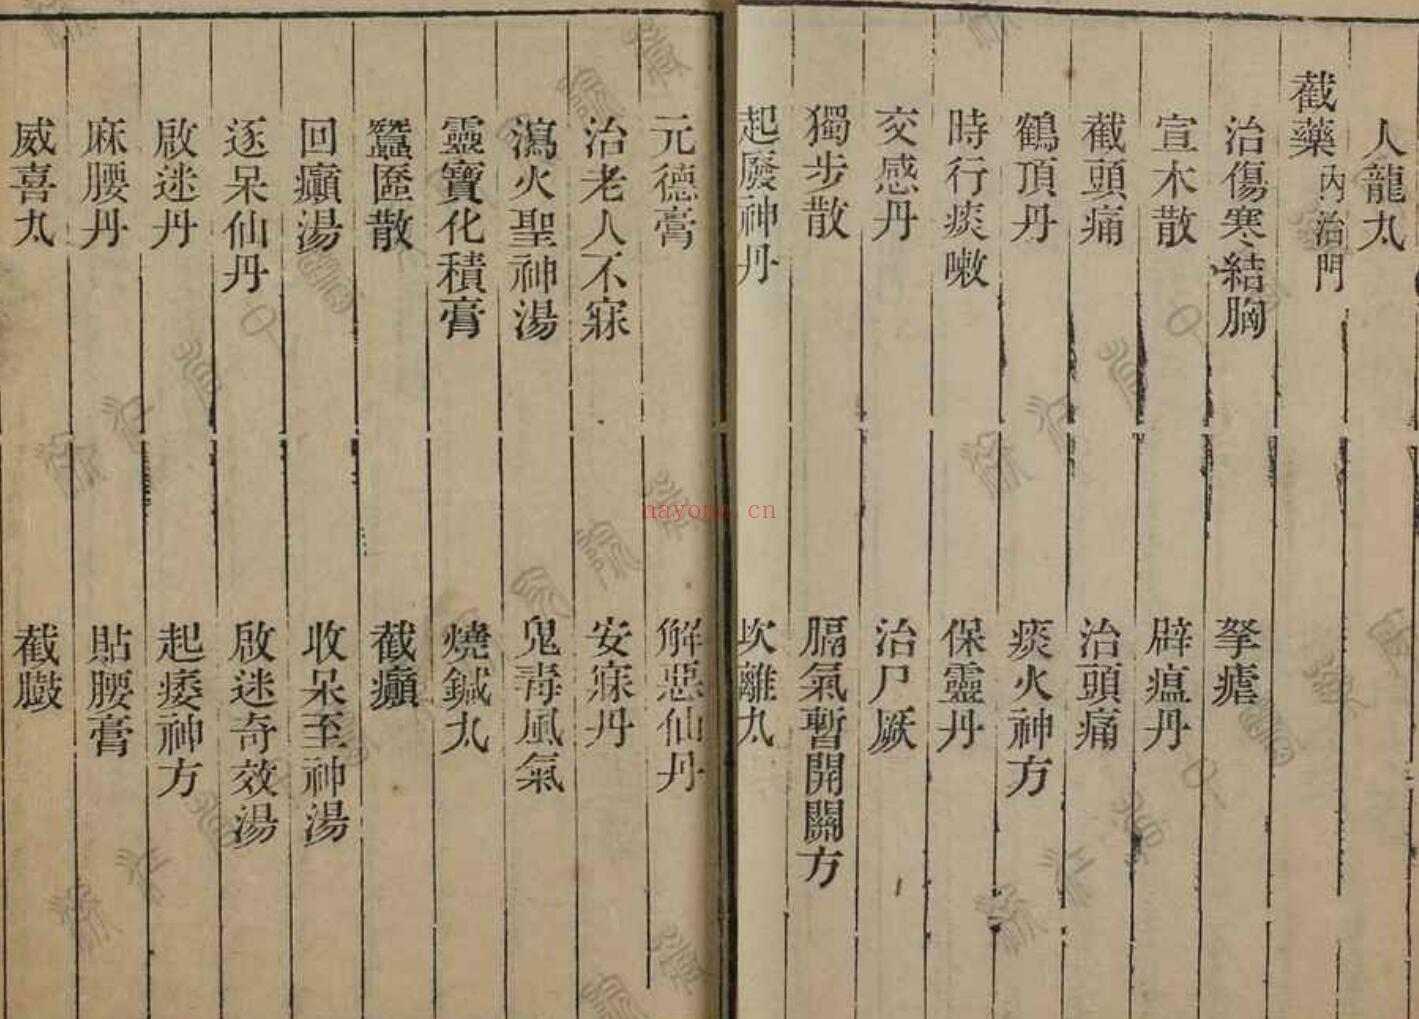 人龍丸
截藥 內治門
治傷寒結胸 拏瘧
宣木散 辟瘟丹
截頭痛 治頭痛
鶴頂丹 痰火神方
時行痰嗽 保靈丹
交感丹 治尸厥
獨步散 膈氣暫開關方
起廢神丹 坎離丸
元德膏 解惡仙丹
治老人不寐 安寐丹
瀉火聖神湯 鬼毒風氣
靈寶化積膏 燒鍼丸
蠶匧散 截癲
回癲湯 收呆至神湯
逐呆仙丹 啟迷奇效湯
啟迷丹 起痿神方
麻腰丹 貼腰膏
威喜丸 截臌
nayona.cn